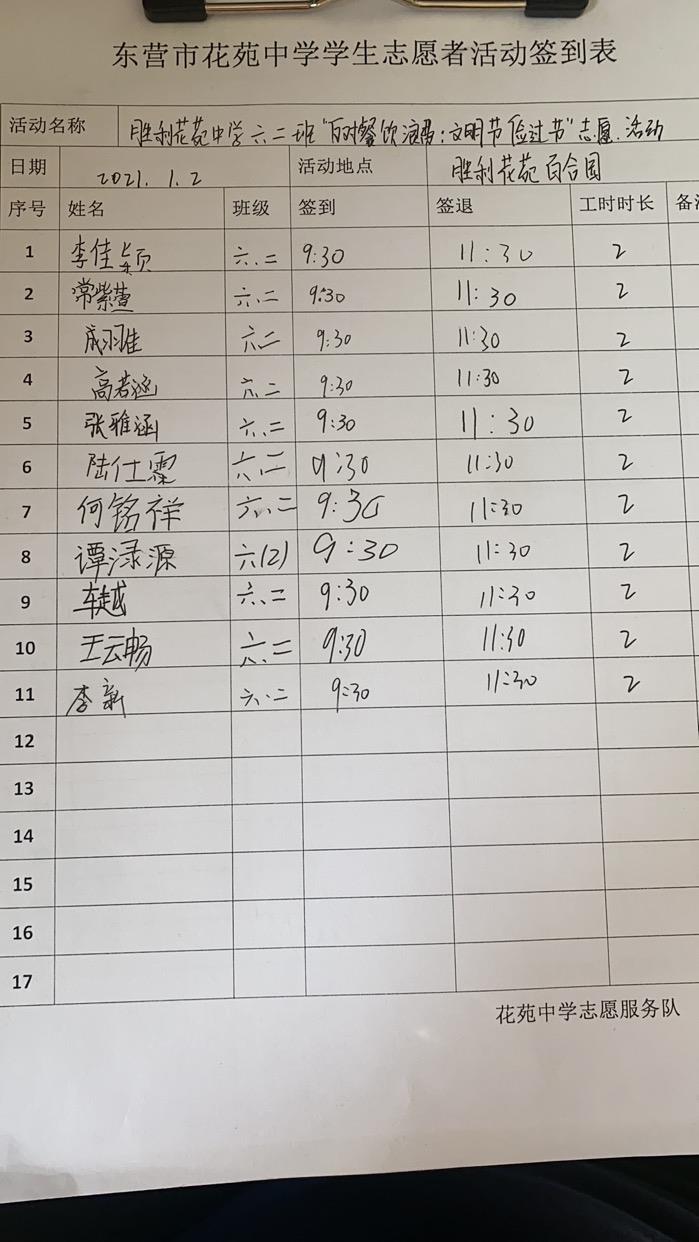 东营市花苑中学学生志愿者活动签到表
活动名称 胜利花苑中学六二班“反对餐饮浪费:文明节俭过节”志愿.活动
日期 2021.1.2 活动地点 胜利花苑百合园
序号 姓名 班级 签到 签退 工时时长 备
1 李佳颖 六.二 9:30 11:30 2
2 常紫萱 六.二 9:30 11:30 2
3 成羽佳 六二 9:30 11:30 2
4 高若涵 六.二 9:30 11:30 2
5 张雅涵 六.二 9:30 11:30 2
6 陆仕霖 六二 9:30 11:30 2
7 何铭祥 六.二 9:30 11:30 2
8 谭渌源 六(2) 9:30 11:30 2
9 车越 六.二 9:30 11:30 2
10 王云畅 六.二 9:30 11:30 2
11 李新 六.二 9:30 11:30 2
12
13
14
15
16
17
花苑中学志愿服务队